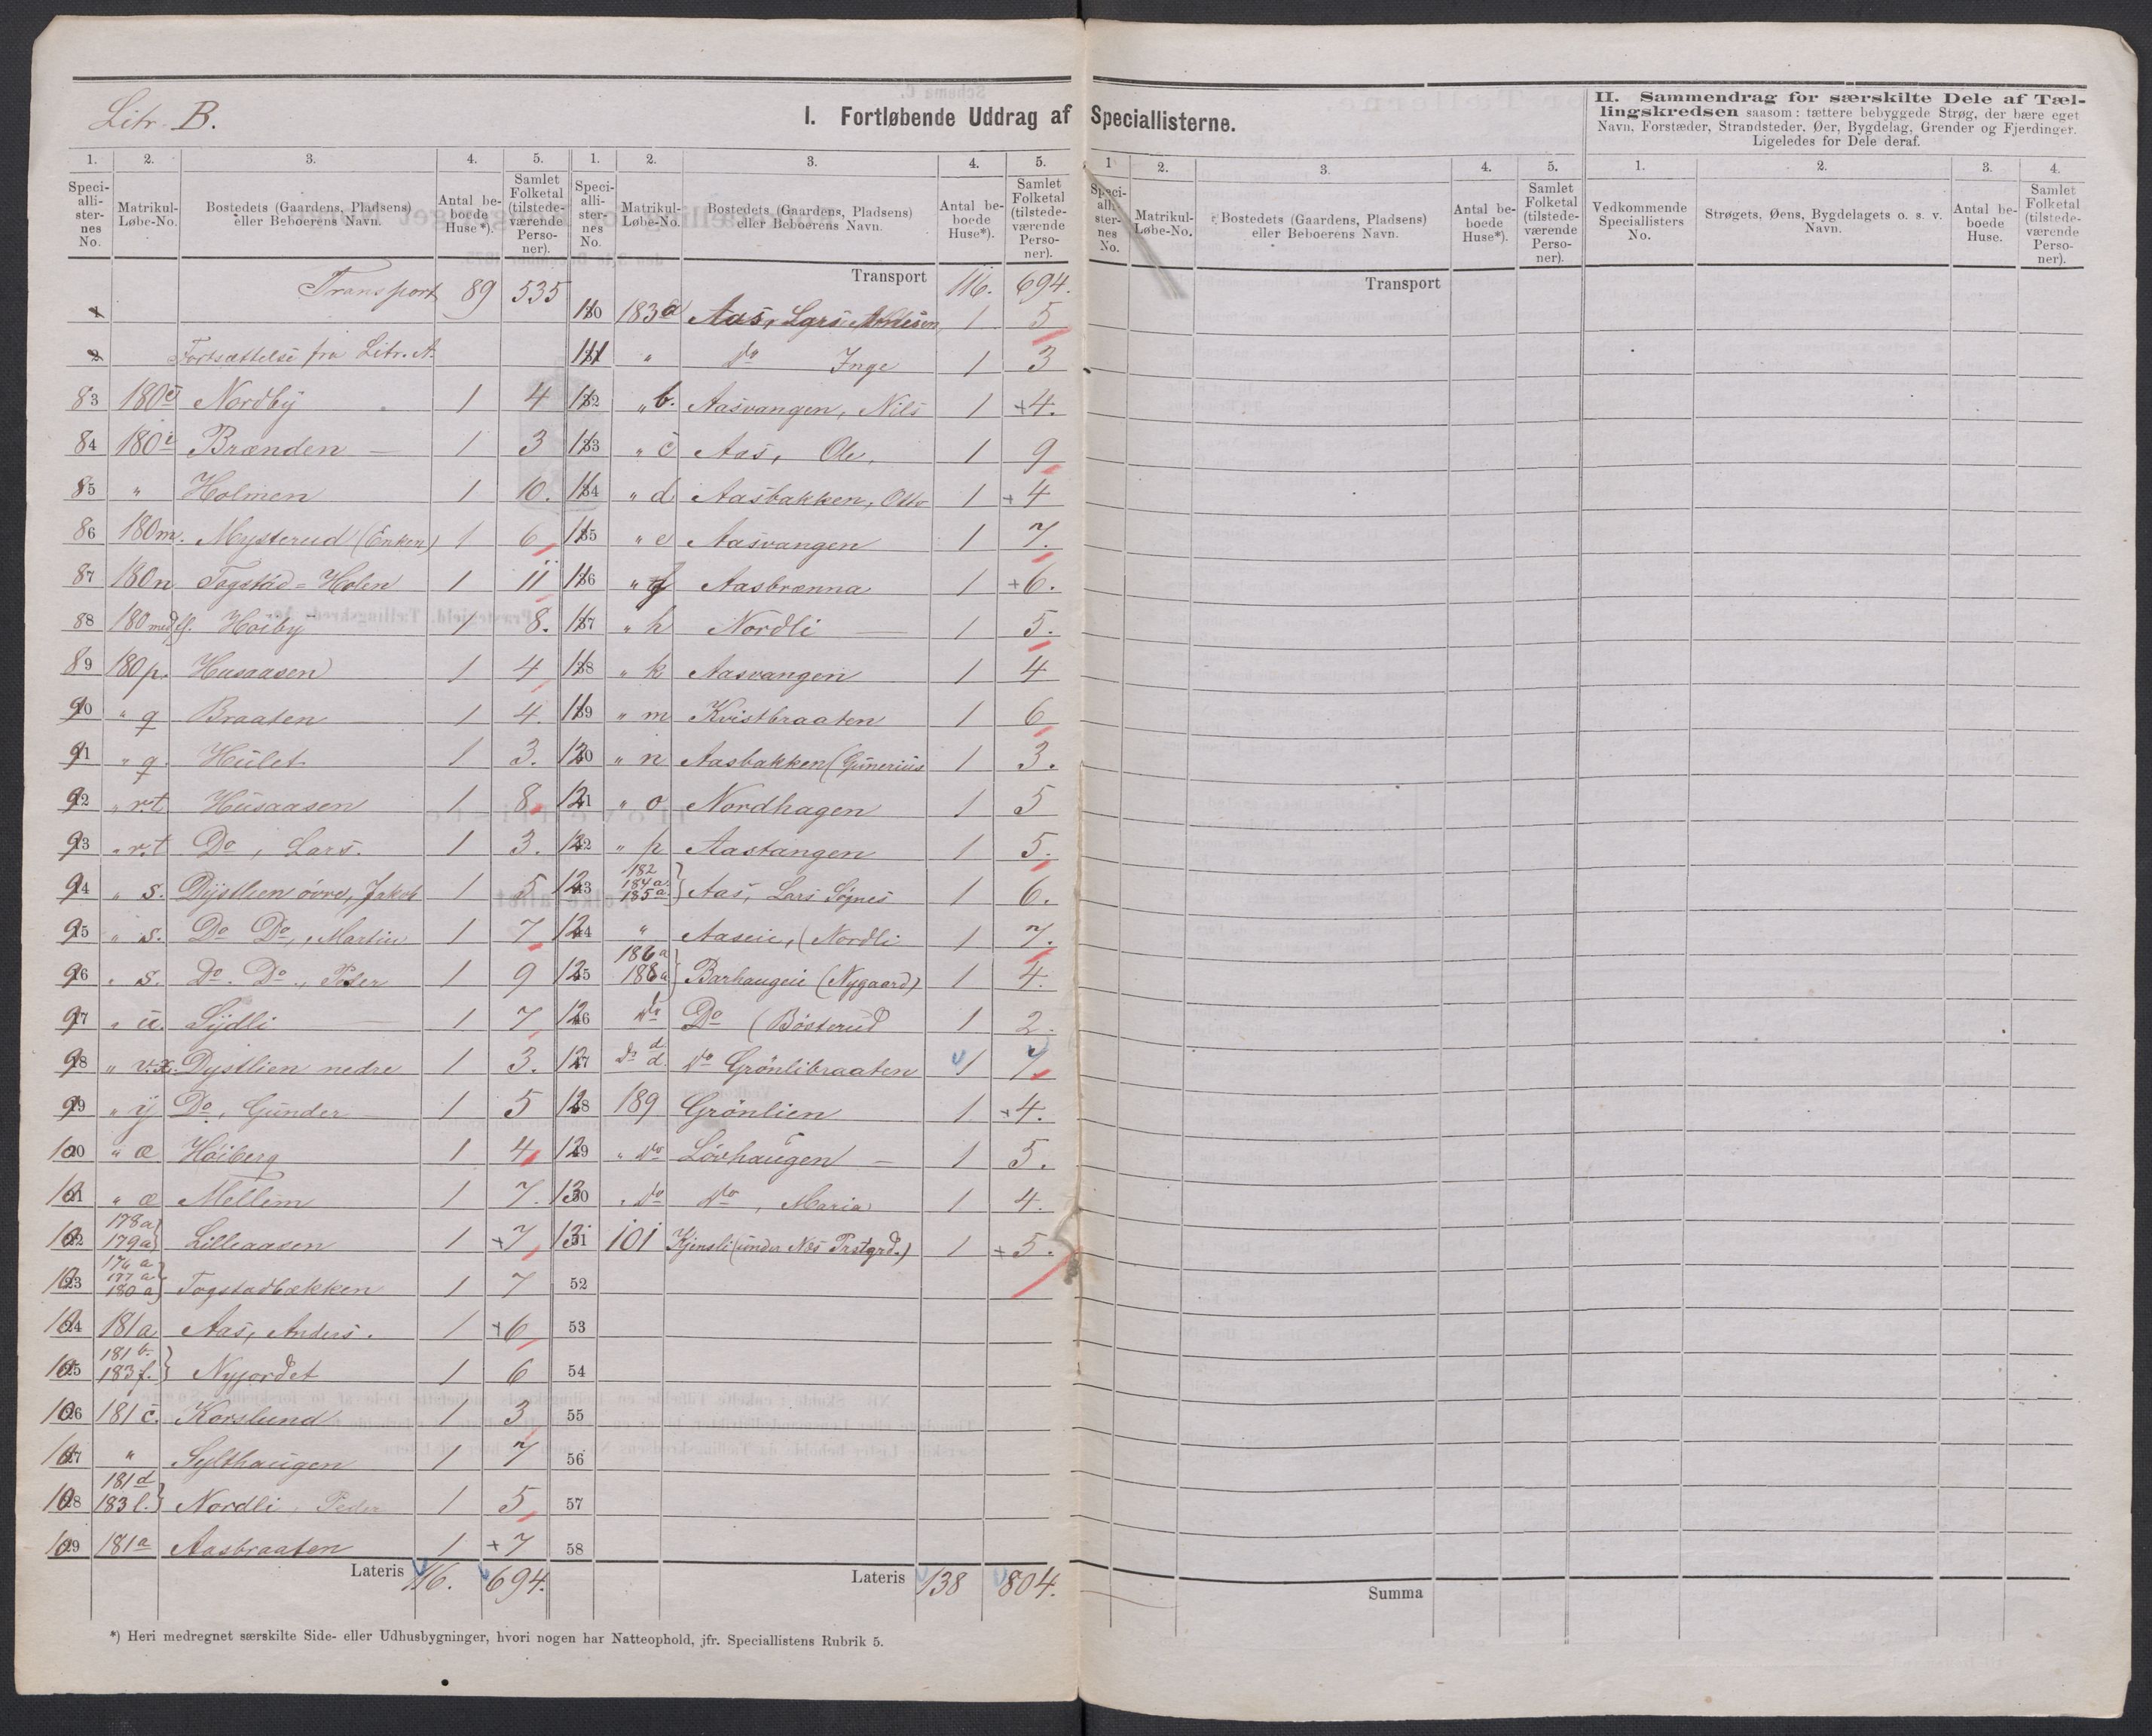 Litr. B.
I. Fortløbende Uddrag af Speciallisterne.
II. Sammendrag for særskilte Dele af Tæl-
lingskredsen saasom: tættere bebyggede Strøg, der bære eget
Navn, Forstæder, Strandsteder, Øer, Bygdelag, Grender og Fjerdinger.
Ligeledes for Dele deraf.
1. 2. 3. 4. 5.
Speci-alli-ster-nes No. Matrikul-Løbe-No. Bostedets (Gaardens, Pladsens) eller Beboerens Navn. Antal be-boede Huse*). Samlet Folketal (tilstede-værende Perso-ner).
Transport 89 535
1
2 Fortsættelse fra Litr. A.
83 180 Nordby 1 4
84 180 i Brænden 1 3
85 " Holmen 1 10.
86 180 m. Mysterud (Enken) 1 6
87 180 n Togstad=Holen 1 11
88 180 med fl. Høiby 1 8.
89 180 p. Husaasen 1 4
90 " q Braaten 1 4
91 " q Hulet 1 3.
92 " r.t Husaasen 1 8
93 " r.t Do, Lars. 1 3.
94 " s. Dystlien övre, Jakob 1 5
95 " s. Do Do, Martin 1 7
96 " s. Do. Do., Peder 1 9
97 " u. Sydli 1 7
98 " v.x. Dystlien nedre 1 3.
99 " y Do, Gunder 1 5
100 " æ Höiberg 1 4
101 " æ Mellem 1 7.
102 178a 179a } Lilleaasen 1 +7
103 176 a 177 a 180 a } Togstadbækken 1 7
104 181a Aas, Anders. 1 +6
105 181 b. 183 f. } Nyjordet 1 6
106 181 c. Korslund 1 3
107 " Sylthaugen 1 7
108 181d 183 l. } Nordli, Peder 1 5
109 181a Aasbraaten 1 +7
Lateris 116. 694.
1. 2. 3. 4. 5.
Speci-alli-ster-nes No. Matrikul-Løbe-No. Bostedets (Gaardens, Pladsens) eller Beboerens Navn. Antal be-boede Huse*). Samlet Folketal (tilstede-værende Perso-ner).
Transport 116. 694.
110 183a Aas, Lars 1 5
111 " do Inge 1 3
112 " b. Aasvangen, Nils 1 +4.
113 " c Aas, Ole, 1 9
114 " d Aasbakken, Otto 1 +4
115 " e Aasvangen 1 7.
116 " g Aasbrænna 1 +6.
117 " h Nordli 1 5.
118 " k Aasvangen 1 4
119 " m Kvistbraaten 1 6
120 " n Aasbakken (Gunerius 1 3.
121 " o Nordhagen 1 5
122 " p Aastangen 1 5.
123 182 184a. 185a. } Aas, Lars Signes 1 6.
124 " Aaseie, (Nordli 1 7.
125 186a 188a } Barhaugeie (Nygaard) 1 4.
126 do Do (Bösterud 1 2.
127 do d d. do Grönlibraaten 1 7.
128 189 Grönlien 1 +4.
129 " do Lövhaugen 1 5.
130 " do do, Maria 1 4.
131 101 Kjensli (under Næs Prstgrd.) 1 +5.
52
53
54
55
56
57
58
Lateris 138 804.
1 2. 3. 4. 5.
Speci-alli-ster-nes No. Matrikul-Løbe-No. Bostedets (Gaardens, Pladsens) eller Beboerens Navn. Antal be-boede Huse*). Samlet Folketal (tilstede-værende Perso-ner).
Transport
Summa
1. 2. 3. 4.
Vedkommende Speciallisters No. Strøgets, Øens, Bygdelagets o. s. v. Navn. Antal be-boede Huse. Samlet Folketal (tilstede-værende Perso-ner).
*) Heri medregnet særskilte Side- eller Udhusbygninger, hvori nogen har Natteophold, jfr. Speciallistens Rubrik 5.